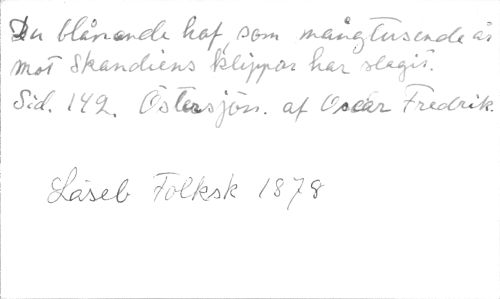 Du blånande haf, som mångtusende år
mot Skandiens klippor har slagit.
Sid. 142. Östersjön. af Oscar Fredrik.
Läseb Folksk 1878